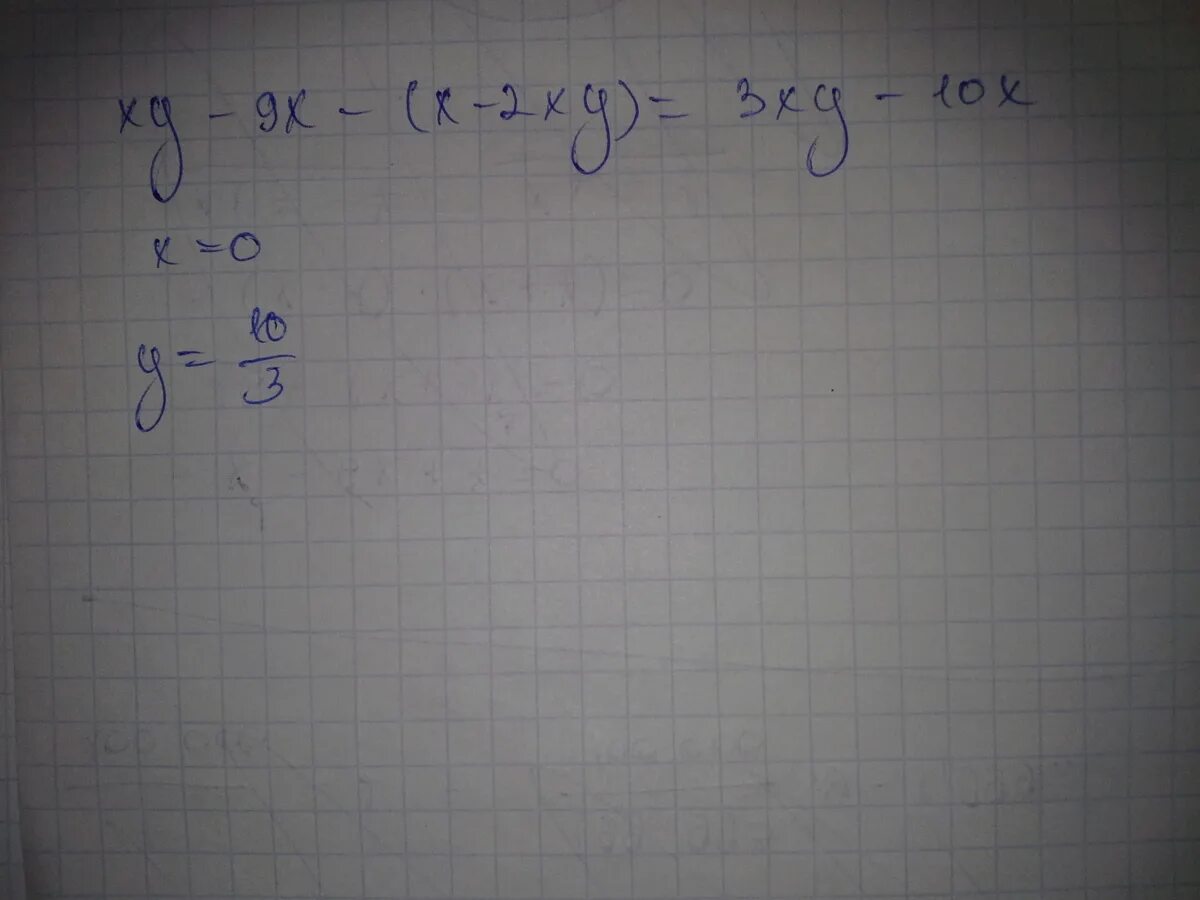 xy - 9x - (x - 2xy) = 3xy - 10x
x = 0
y = 10/3